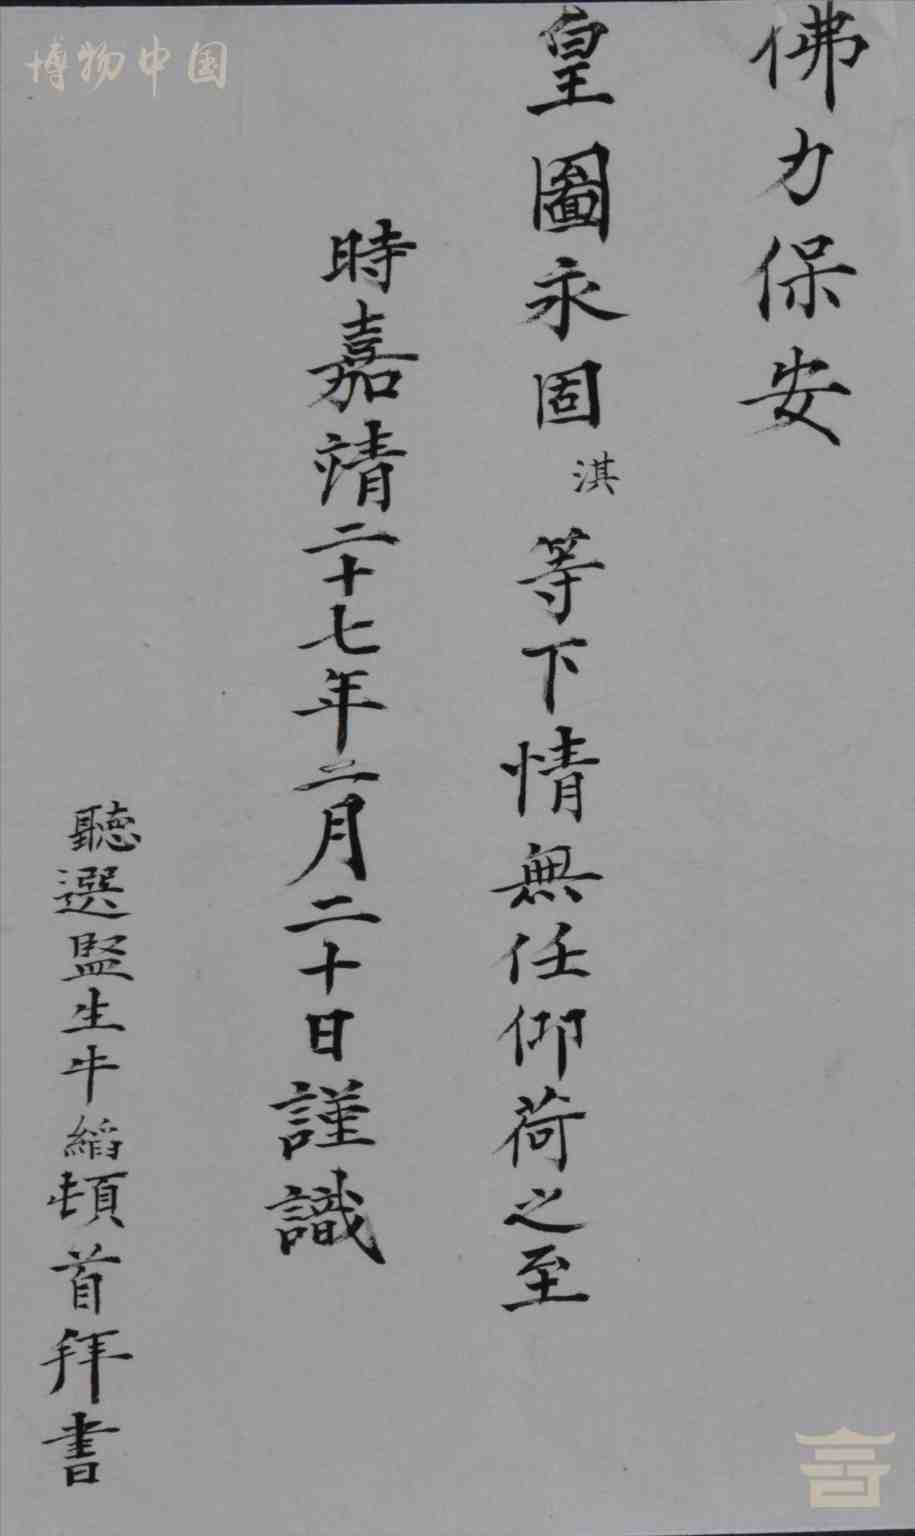 佛力保安
皇圖永固淇等下情無任仰荷之至
時嘉靖二十七年二月二十日謹識
聽選監生牛縚頓首拜書
博物中国